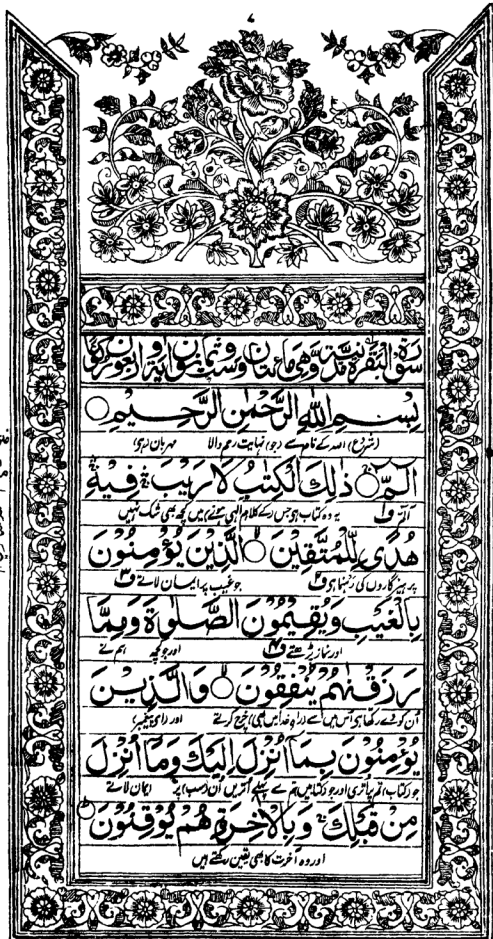 ۷
سورة البقرة مدنية وهي مائتان وست وثمانون اية واربعون ركوعا
بِسْمِ اللهِ الرَّحْمٰنِ الرَّحِيْمِ
(شروع) اللہ کے نام سے (جو) نہایت رحم والا مہربان (ہے)
الٓمّٓ ۝ ذٰلِكَ الْكِتٰبُ لَا رَيْبَ ۛ فِيْهِ ۛ
الٓمّٓ ف۱ یہ وہ کتاب ہے جس (کے کلام الٰہی ہونے) میں کچھ بھی شک نہیں
هُدًى لِّلْمُتَّقِيْنَ ۝ الَّذِيْنَ يُؤْمِنُوْنَ
پرہیزگاروں کی رہنما ہے ف۲ جو غیب پر ایمان لاتے ف۳
بِالْغَيْبِ وَيُقِيْمُوْنَ الصَّلٰوةَ وَمِمَّا
اور نماز پڑھتے ف۴ اور جو کچھ ہم نے
رَزَقْنٰهُمْ يُنْفِقُوْنَ ۝ وَالَّذِيْنَ
ان کو دے رکھا ہے اس میں سے (راہ خدا میں بھی) خرچ کرتے اور (اے پیغمبر)
يُؤْمِنُوْنَ بِمَآ اُنْزِلَ اِلَيْكَ وَمَآ اُنْزِلَ
جو (کتاب) تم پر اتری اور جو (کتابیں) تم سے پہلے اتریں ان (سب) پر ایمان لاتے
مِنْ قَبْلِكَ ۚ وَبِالْاٰخِرَةِ هُمْ يُوْقِنُوْنَ ۝
اور وہ آخرت کا بھی یقین رکھتے ہیں